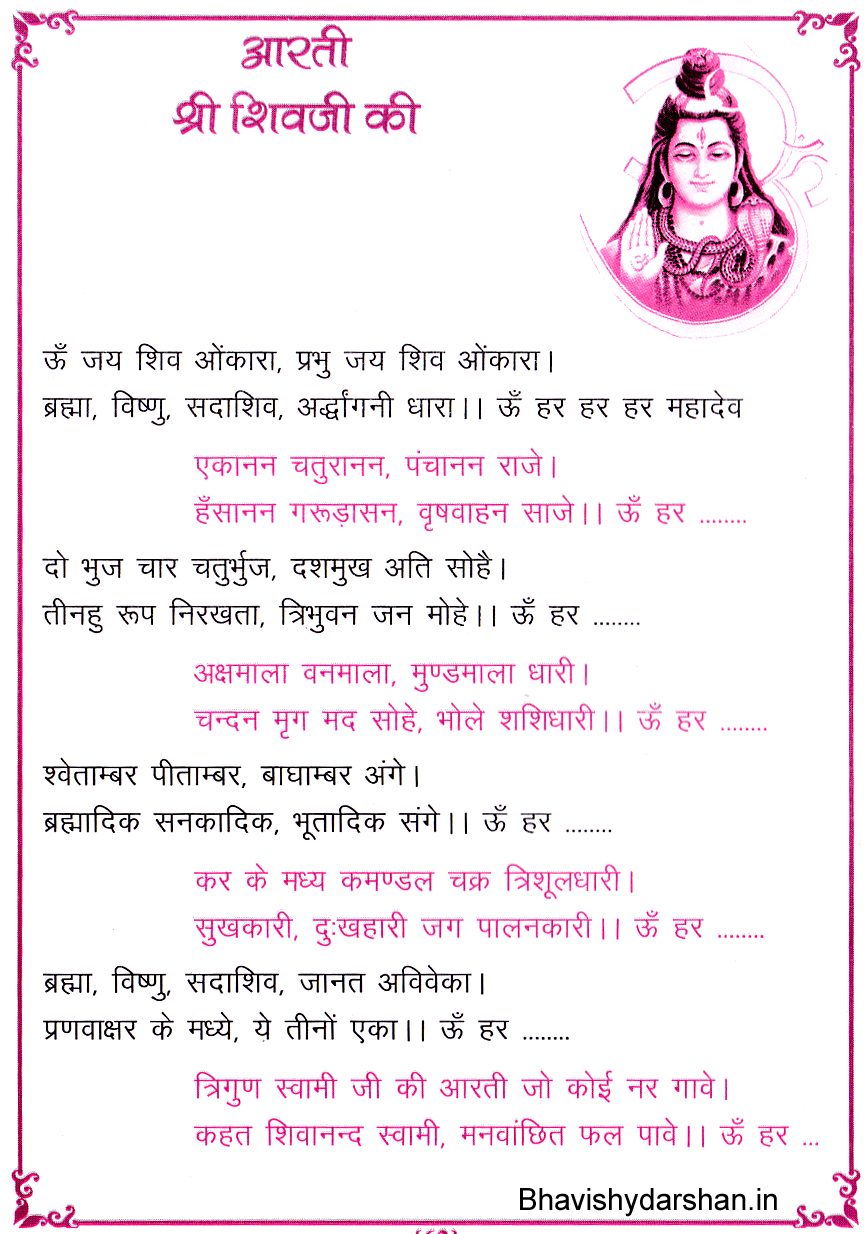 आरती
श्री शिवजी की
ऊँ जय शिव ओंकारा, प्रभु जय शिव ओंकारा।
ब्रह्मा, विष्णु, सदाशिव, अर्द्धांगनी धारा।। ऊँ हर हर हर महादेव
एकानन चतुरानन, पंचानन राजे।
हँसानन गरूड़ासन, वृषवाहन साजे।। ऊँ हर ........
दो भुज चार चतुर्भुज, दशमुख अति सोहै।
तीनहु रूप निरखता, त्रिभुवन जन मोहे।। ऊँ हर ........
अक्षमाला वनमाला, मुण्डमाला धारी।
चन्दन मृग मद सोहे, भोले शशिधारी।। ऊँ हर ........
श्वेताम्बर पीताम्बर, बाघाम्बर अंगे।
ब्रह्मादिक सनकादिक, भूतादिक संगे।। ऊँ हर ........
कर के मध्य कमण्डल चक्र त्रिशूलधारी।
सुखकारी, दुःखहारी जग पालनकारी।। ऊँ हर ........
ब्रह्मा, विष्णु, सदाशिव, जानत अविवेका।
प्रणवाक्षर के मध्ये, ये तीनों एका।। ऊँ हर ........
त्रिगुण स्वामी जी की आरती जो कोई नर गावे।
कहत शिवानन्द स्वामी, मनवांछित फल पावे।। ऊँ हर ...
Bhavishydarshan.in